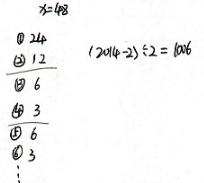 x=48
① 24
② 12
③ 6
④ 3
⑤ 6
⑥ 3
⋮
(2014-2)÷2=1006